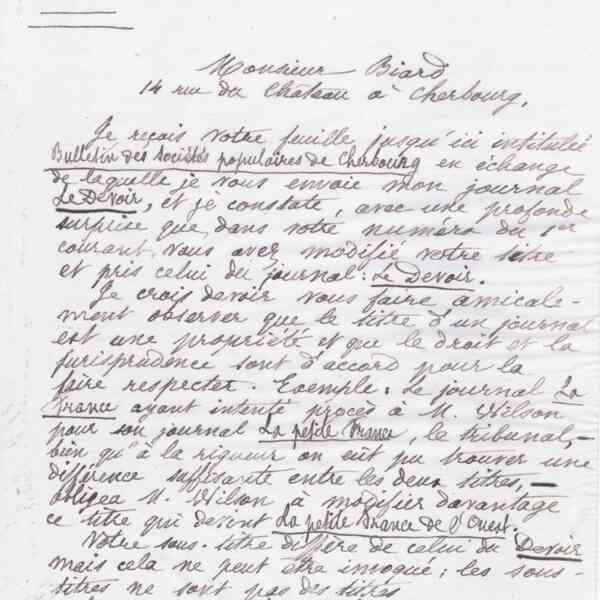 Monsieur Biard
14 rue du Château à Cherbourg.
Je reçois votre feuille jusqu'ici intitulée
Bulletin des Sociétés populaires de Cherbourg en échange
de laquelle je vous envoie mon journal
Le Devoir, et je constate, avec une profonde
surprise que, dans votre numéro du 1er
courant, vous avez modifié votre titre
et pris celui du journal : Le Devoir.
Je crois devoir vous faire amicale-
ment observer que le titre d'un journal
est une propriété et que le droit et la
jurisprudence sont d'accord pour la
faire respecter. Exemple : Le journal La
France ayant intenté procès à M. Wilson
pour son journal La petite France, le tribunal, -
bien qu'à la rigueur on eut pu trouver une
différence suffisante entre les deux titres, -
obligea M. Wilson à modifier davantage
ce titre qui devint La petite France de l'Ouest.
Votre sous-titre diffère de celui du Devoir
mais cela ne peut être invoqué ; les sous-
titres ne sont pas des titres